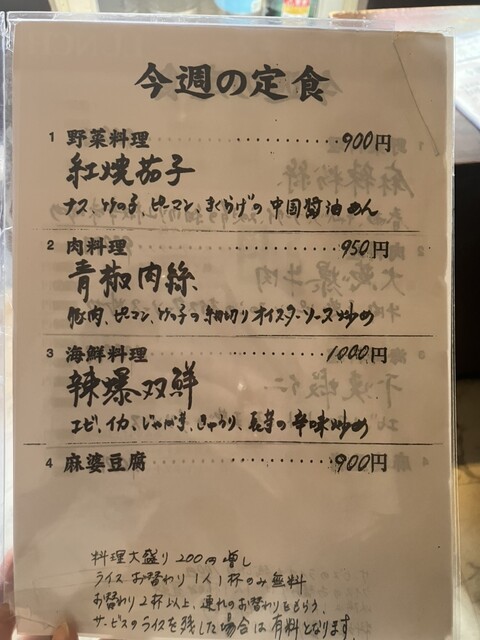 今週の定食
1 野菜料理 ・・・・・・・・・・・・ 900円
紅焼茄子
ナス、竹の子、ピーマン、きくらげの中国醤油あん
2 肉料理 ・・・・・・・・・・・・ 950円
青椒肉絲
豚肉、ピーマン、竹の子の細切りオイスターソース炒め
3 海鮮料理 ・・・・・・・・・・・・ 1000円
辣爆双鮮
エビ、イカ、じゃが芋、きゅうり、長芋の辛味炒め
4 麻婆豆腐 ・・・・・・・・・・・・ 900円
料理大盛り200円増し
ライスお替わり1人1杯のみ無料
お替わり2杯以上、連れのお替わりをもらう、
サービスのライスを残した場合は有料となります。